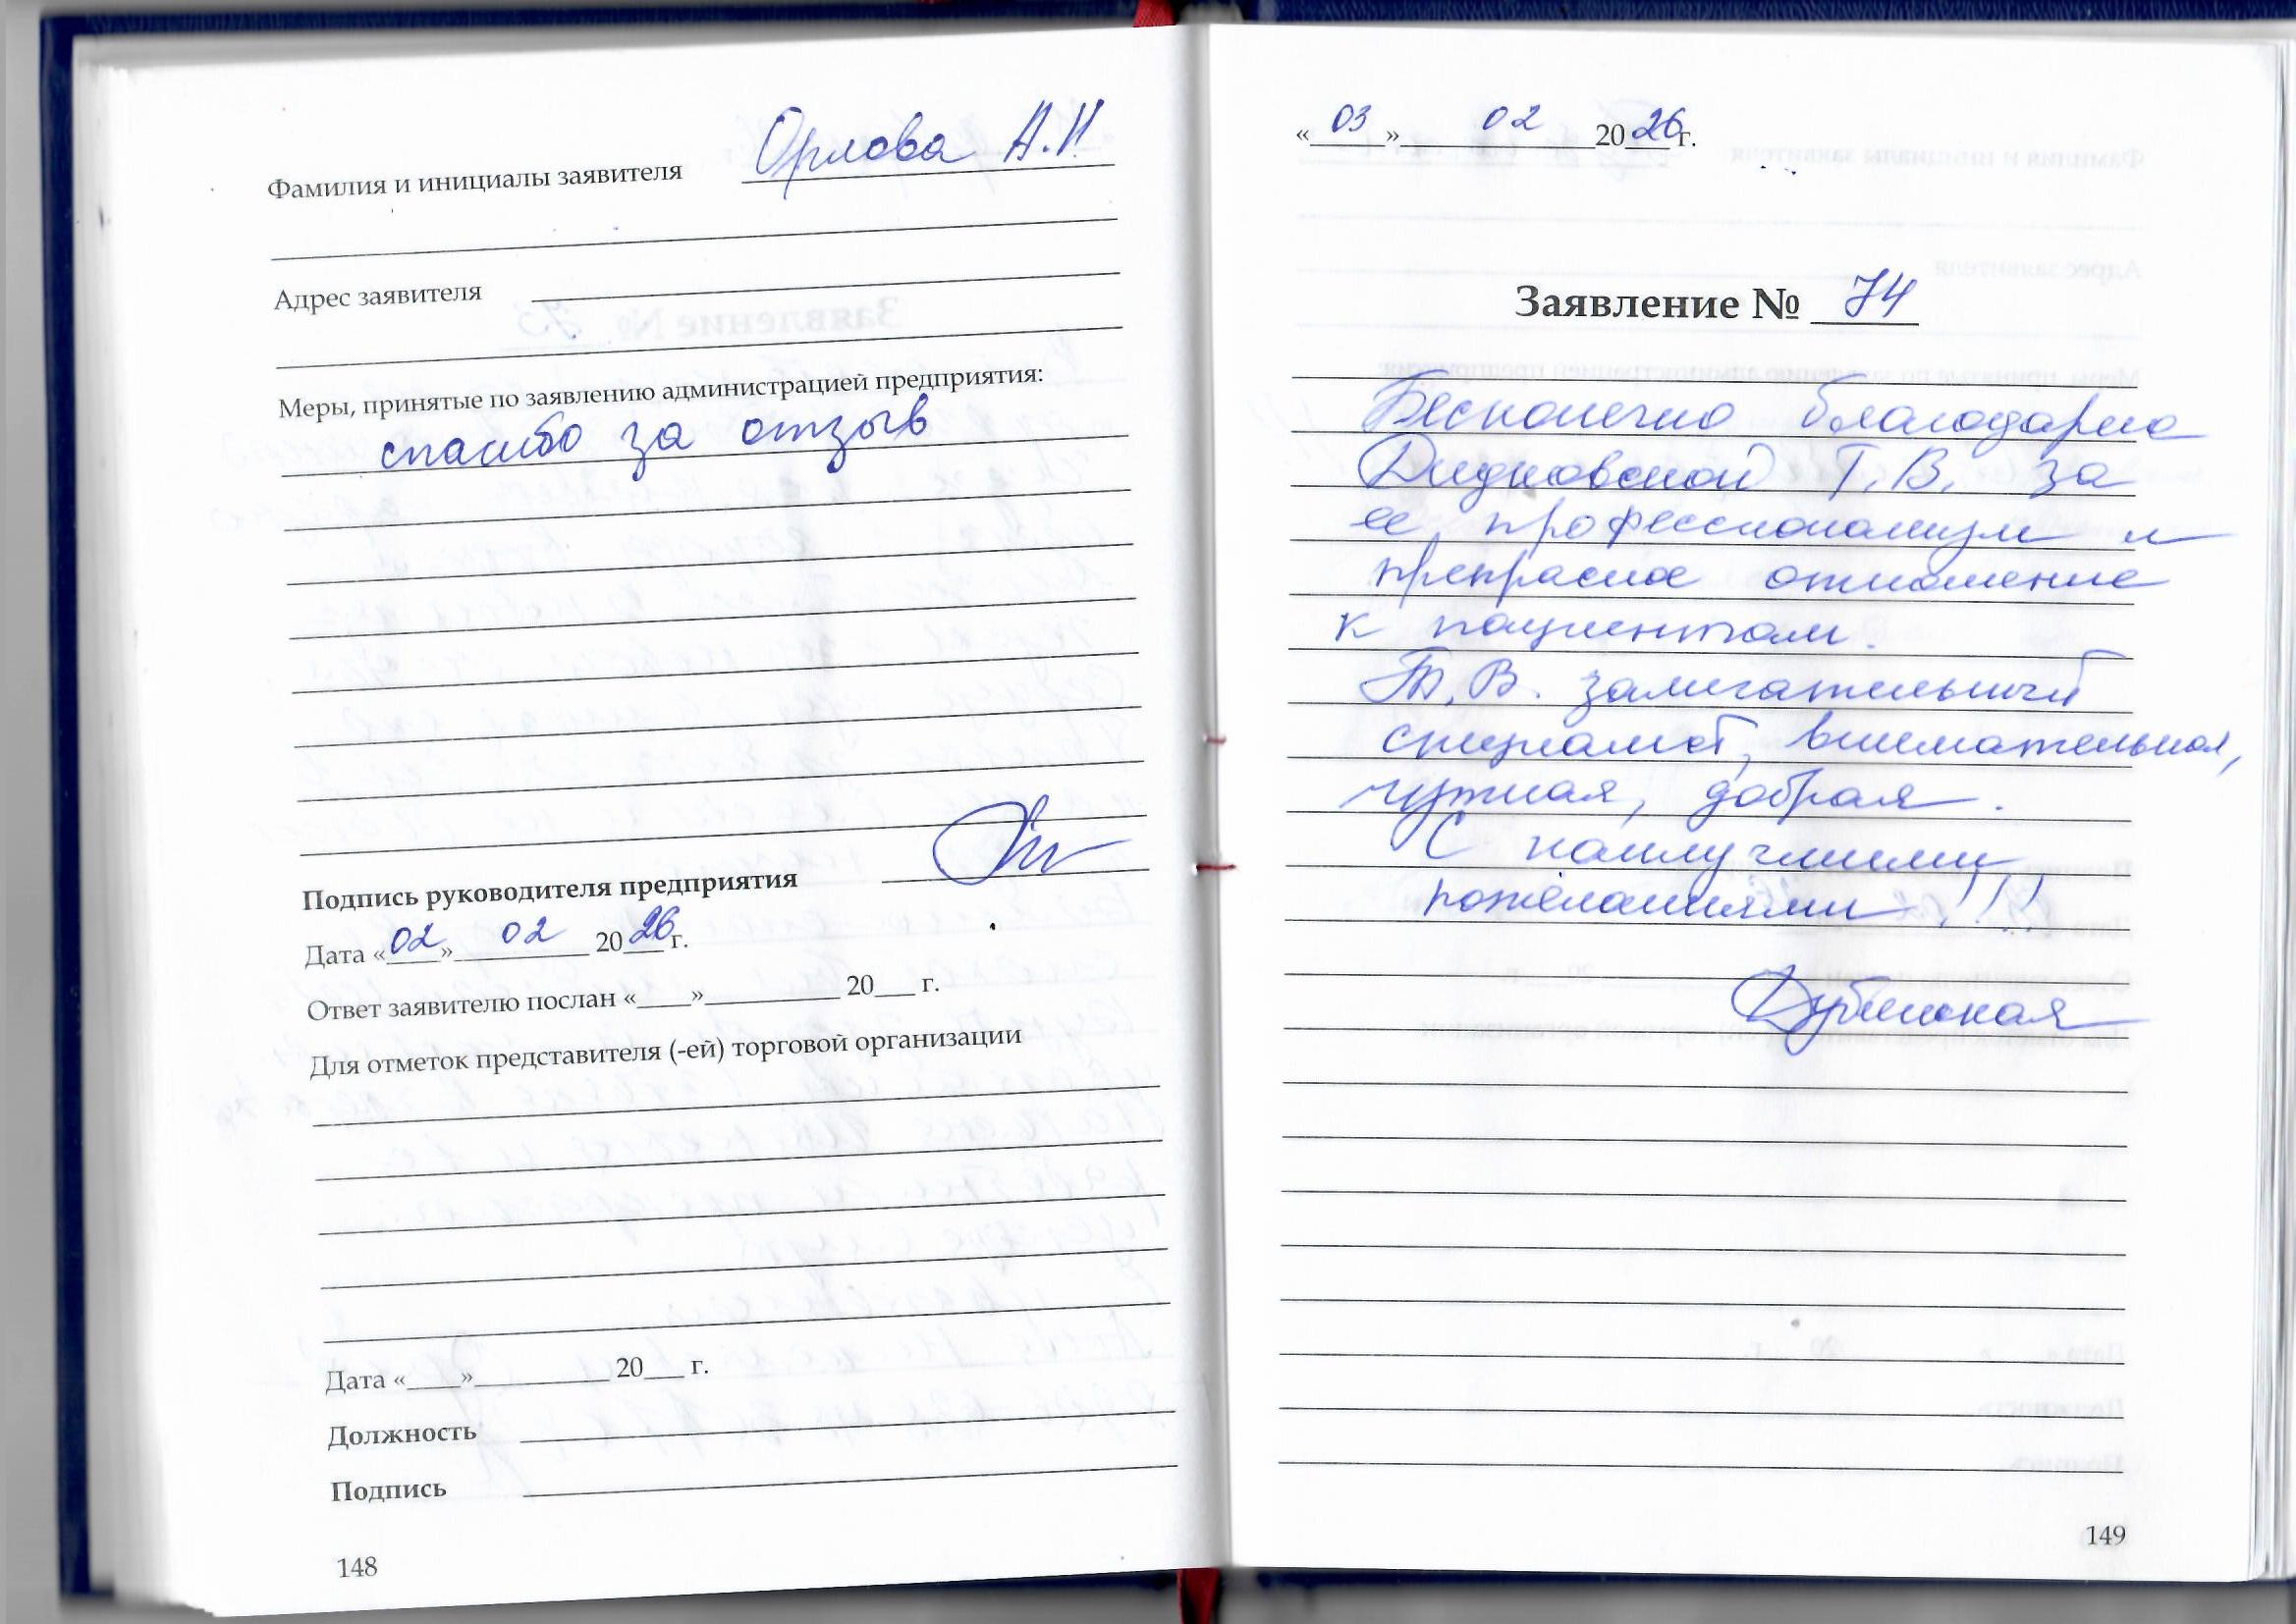 Фамилия и инициалы заявителя Орлова А.И
Адрес заявителя
Меры, принятые по заявлению администрацией предприятия:
спасибо за отзыв
Подпись руководителя предприятия
Дата «02» 02 2026 г.
Ответ заявителю послан «____»__________ 20___ г.
Для отметок представителя (-ей) торговой организации
Дата «____»__________ 20___ г.
Должность
Подпись
148
«03» 02 2026г.
Заявление № 74
Бесконечно благодарна
Дидковской Т.В. за
ее профессионализм и
прекрасное отношение
к пациентам.
Т.В. замечательный
специалист, внимательная,
чуткая, добрая.
С наилучшими
пожеланиями!!!
149